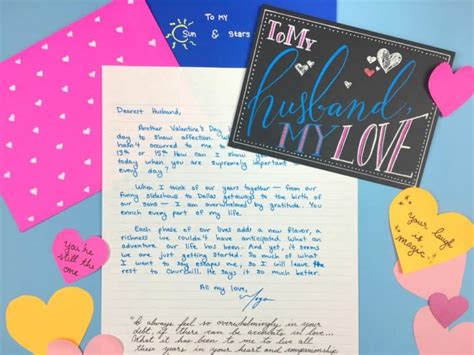 TO MY
Sun & Stars
TO MY
husband,
MY LOVE
Dearest Husband,
Another Valentine's Day
day to show affection. W
hadn't occurred to me to
13th or 15th. How can I show yo
today when you are supremely important
every day?
When I think of our years together — from our
funny slideshows to Dallas getaways to the birth of
our sons — I am overwhelmed by gratitude. You
enrich every part of my life.
Each phase of our lives adds a new flavor, a
richness we couldn't have anticipated. What an
adventure our life has been. And yet, it seems
we are just getting started. So much of what
I want to say escapes me, so I will leave the
rest to Churchill. He says it so much better.
All my love,
"I always feel so overwhelmingly in your
debt, if there can be accounts in love...
What it has been to me to live all
these years in your heart and companionship
You're
still the
one
Your laugh
is
magic